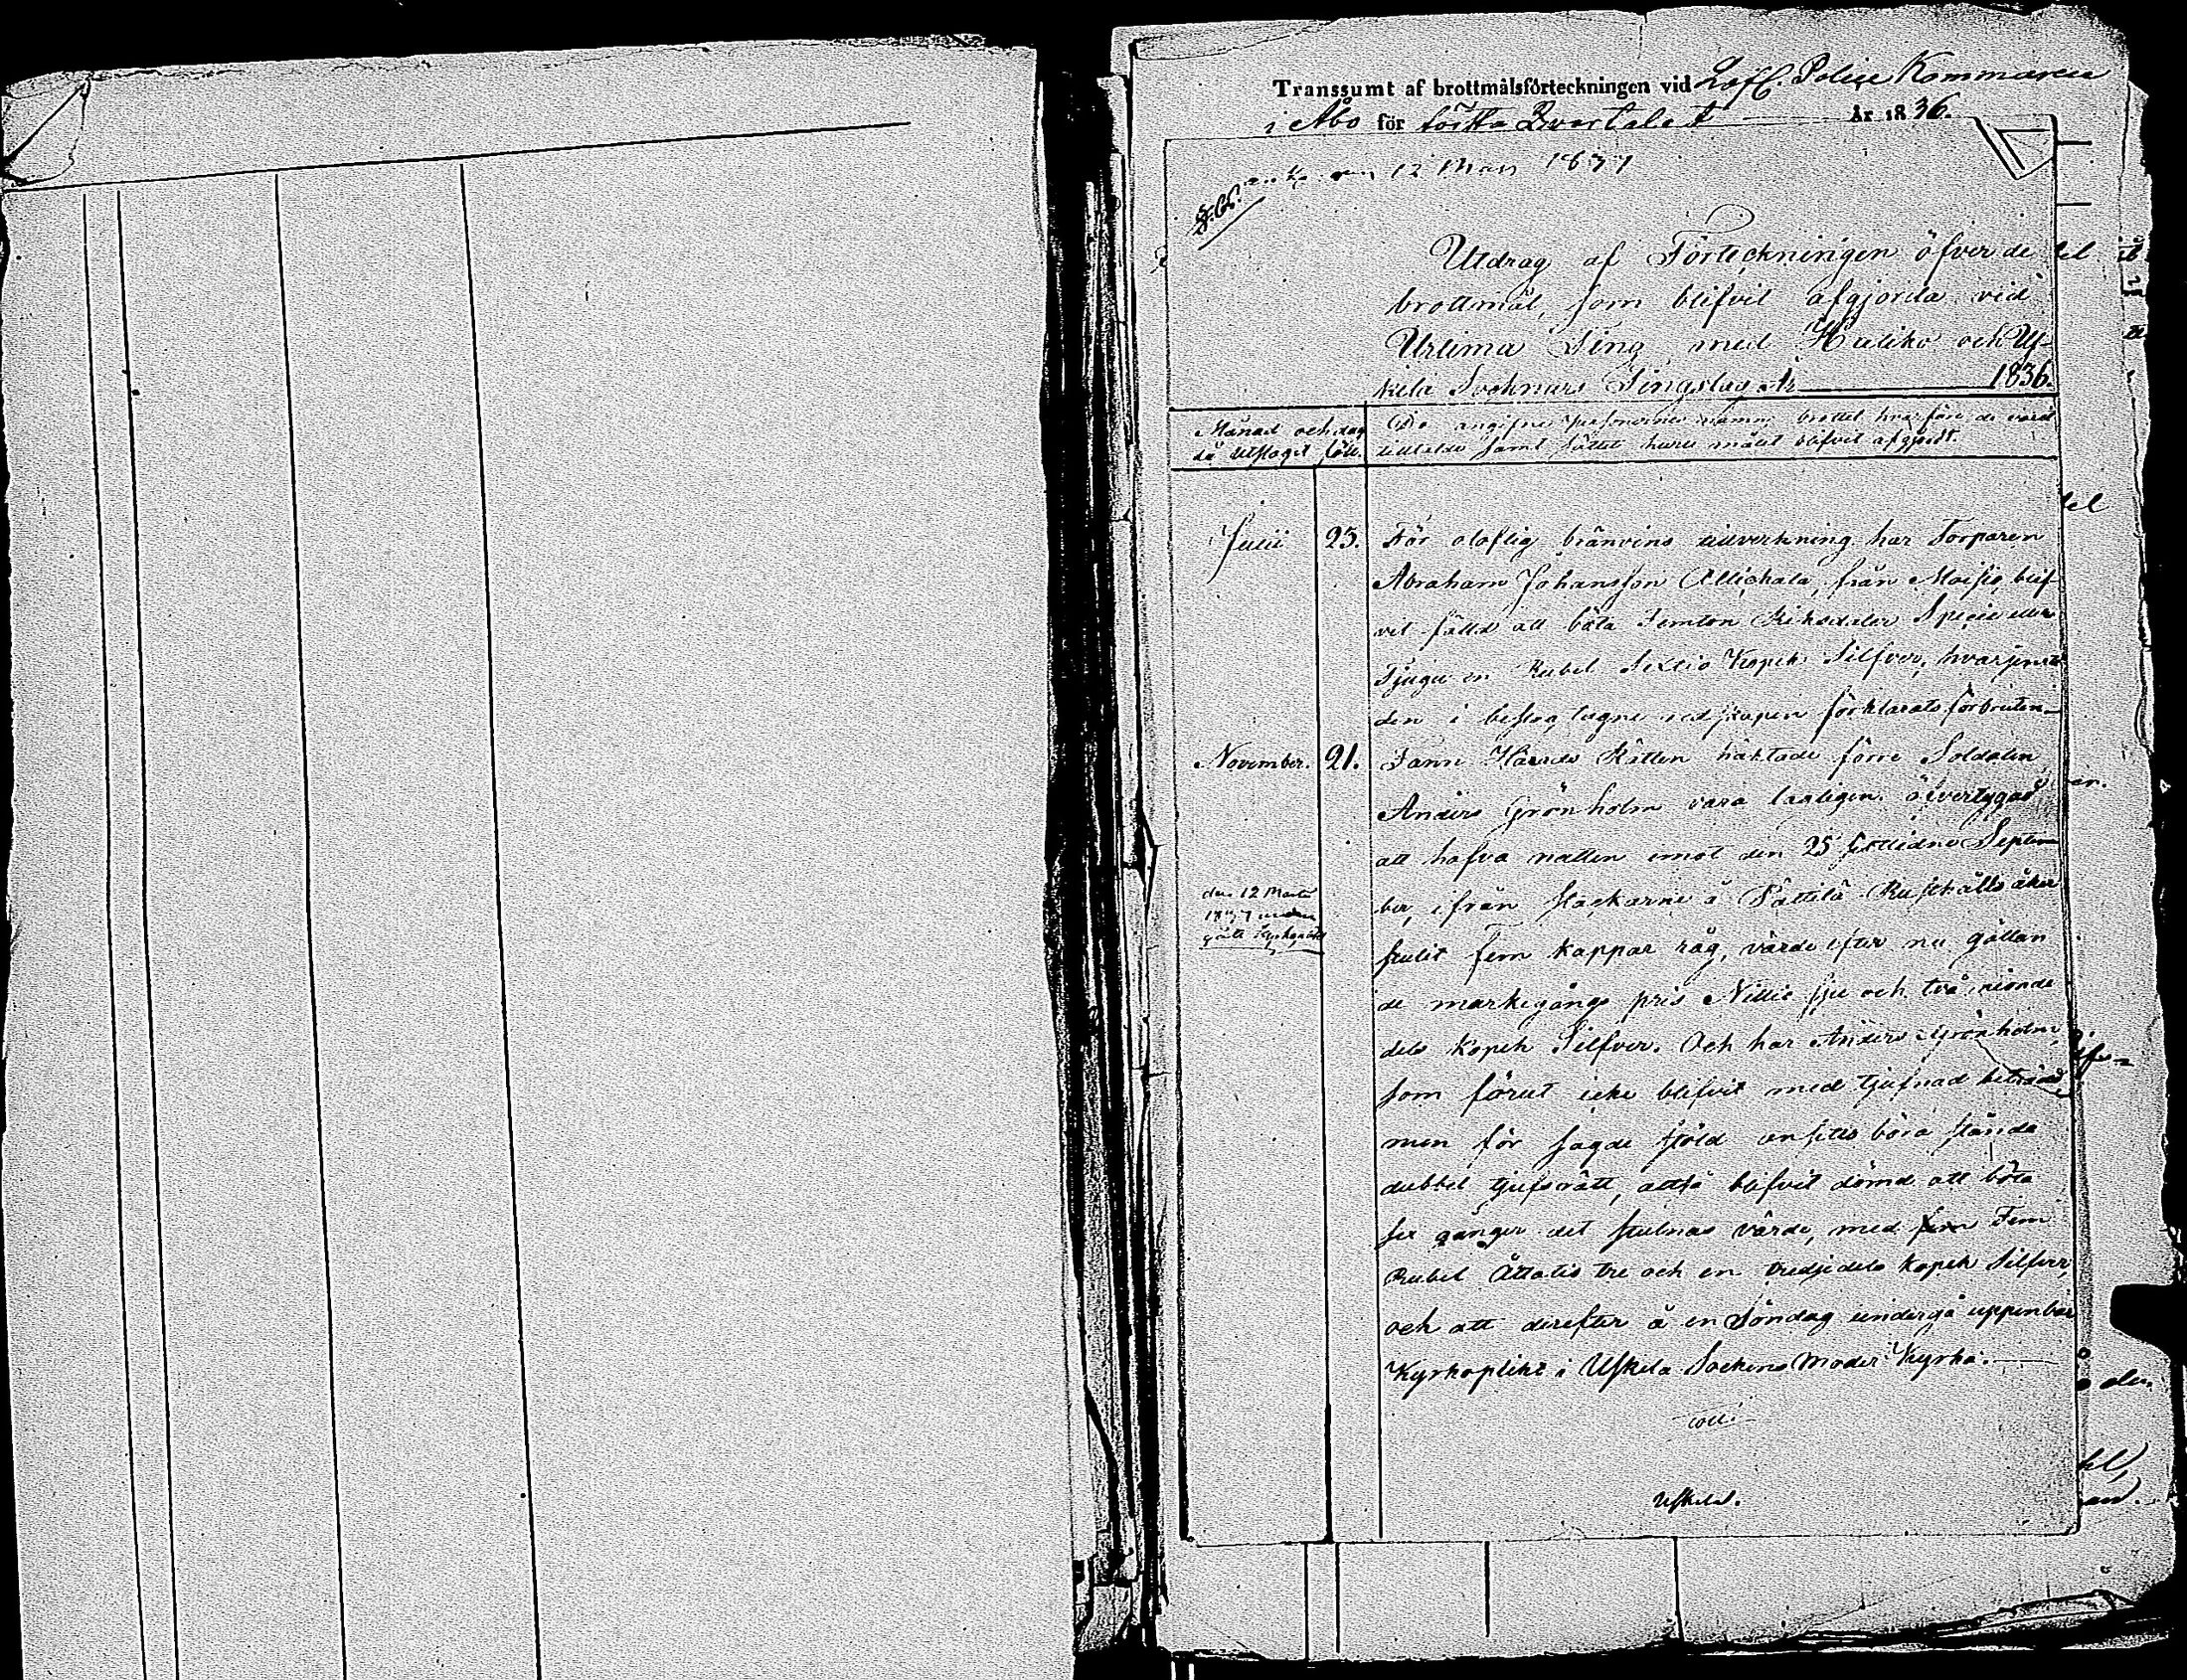 Transsumt af brottmålsförteckningen vid Lofl. Police Kammaren
i Åbo för sista Qvartalet År 1836.
ank. den 12 Mars 1837
Utdrag af Förteckningen öfver de
brottmål, som blifvit afgjorda vid
Urtima Ting med Haliko och Us-
kela Soknars Tingslag År 1836.
Månad och dag
då utslaget föll.
De angifne personernes namn, brottet hvarföre de varit
tilltalde samt sättet huru målet blifvit afgjordt.
Julii 23. För olaflig bränvins tillverkning har Torparen
Abraham Johansson från Moisio, blif-
vit fälld att böta Femton Riksdaler Specie eller
Tjugu en Rubel Sextio Kopek Silfver, hvarjemte
den i beslag tagne redskapen förklarats förbruten.
November. 21. Fann Härads Rätten häktade förre Soldaten
Anders Grönholm vara lagligen öfvertygad
att hafva natten emot den 25 sistlidne Septem-
ber, ifrån skackarne å Pättilä Rusthålls åker
stulit fem kappar råg, värde efter nu gällan-
de markegångs pris Nittio sju och två nionde
dels kopek Silfver. Och har Anders Grönholm,
som förut icke blifvit med tjufnad beträdd
men för sagde stöld ansetts böra stånda
dubbel tjufsrätt, altså blifvit dömd att böta
sex gånger det stulnas värde, med fem Fem
Rubel Åttatio tre och en tredjedels kopek Silfver,
och att derefter å en Söndag undergå uppenbar
Kyrkoplikt i Uskela Sockens Moder Kyrka.
den 12 Martii
1837 under-
gått Kyrkoplikt
Uskela.